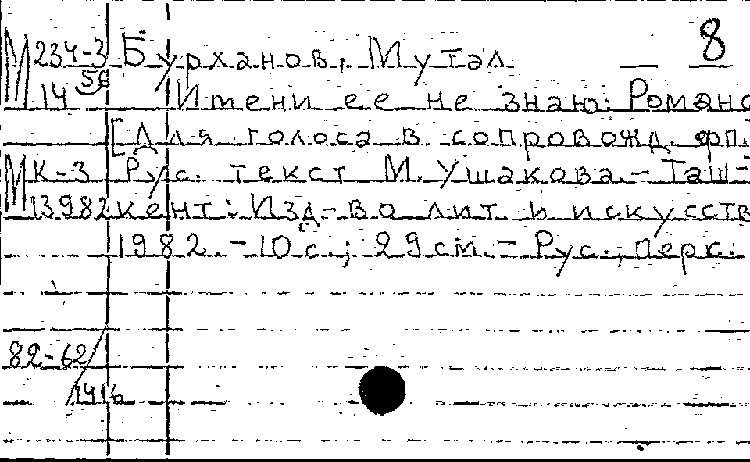 М 234-3 Бурханов, Мутал 8
56
14 Имени ее не знаю: Романс
[Для голоса в сопровожд. фп.
М К-3 Рус. текст М. Ушакова.- Таш-
13982 кент: Изд-во лит и искусств
1982.-10 с.; 29 см.- Рус., перс.
82-62
1416